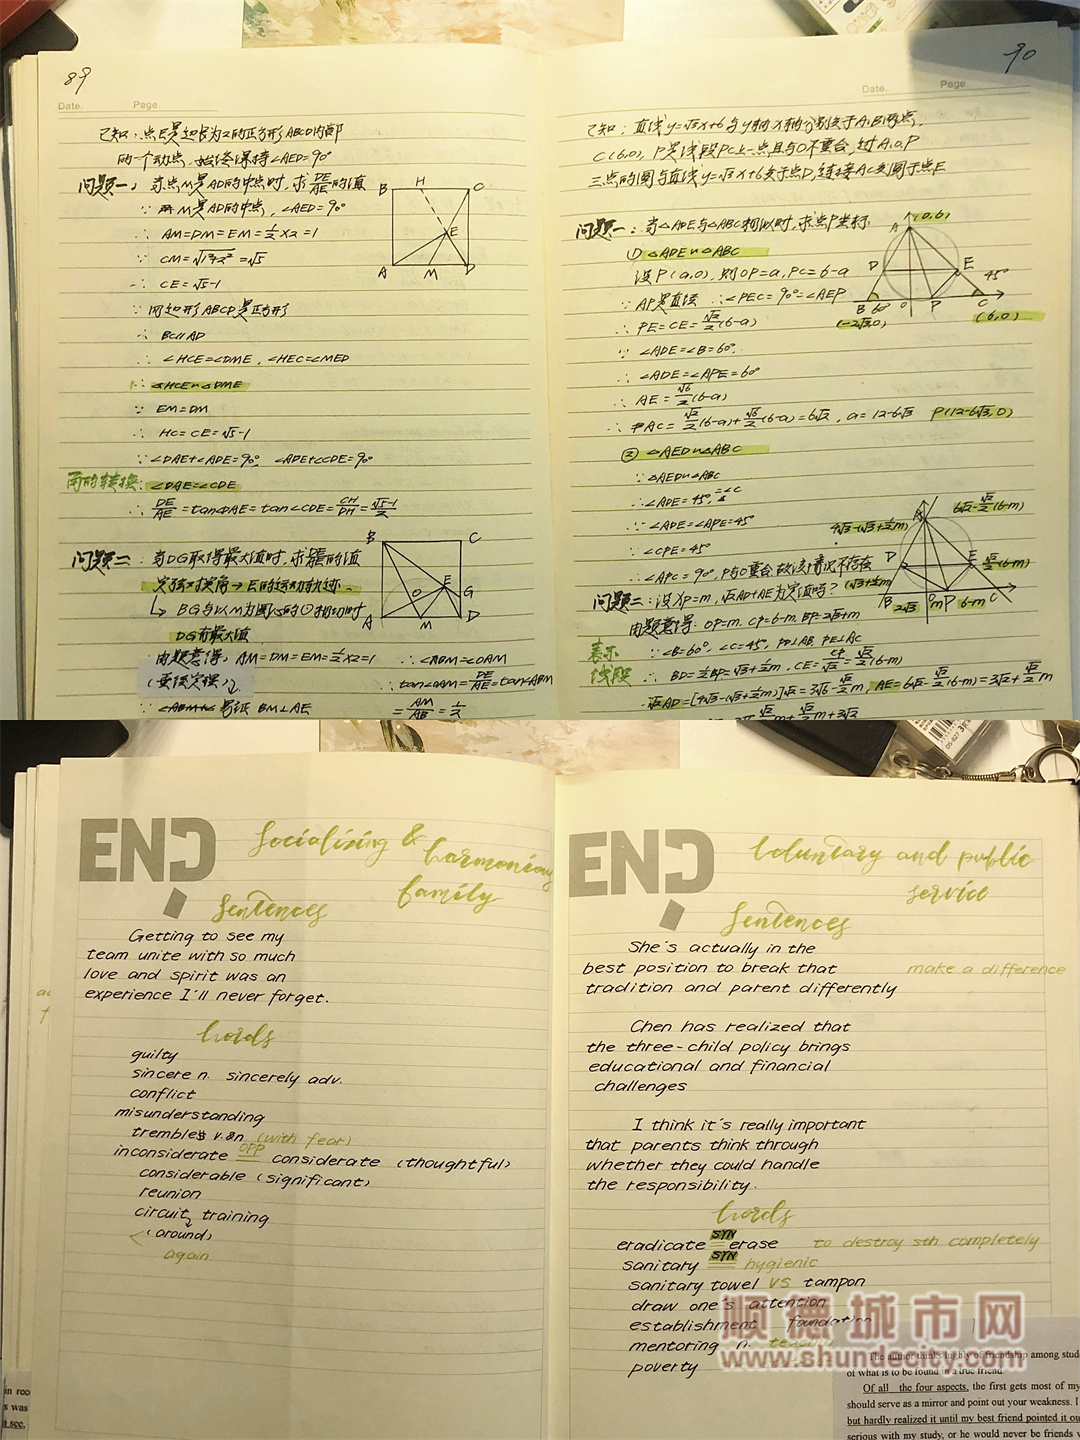 89
Date. Page.
已知：点E是边长为2的正方形ABCD内部
两一个动点，始终保持∠AED=90°
问题一：当点M是AD的中点时，求DE/AE的值
∵ M是AD的中点，∠AED=90°
∴ AM=DM=EM=½×2=1
∵ CM=√1²+2²=√5
∴ CE=√5-1
∵ 四边形ABCD是正方形
∴ BC∥AD
∴ ∠HCE=∠DME，∠HEC=∠MED
∴ △HCE∽△DME
∵ EM=DM
∴ HC=CE=√5-1
∵ ∠DAE+∠ADE=90°，∠ADE+∠CDE=90°
角的转换：∠DAE=∠CDE
∴ DE/AE=tan∠DAE=tan∠CDE=CH/DH=√5-1/2
B H C
E
A M D
问题二：当DG取得最大值时，求的值
定弦对定角→E的运动轨迹
↳ BG与以M为圆心的⊙相切时
DG有最大值
由题意得，AM=DM=EM=½×2=1
∴∠ABM=∠DAM
∴tan∠DAM=DE/AE=tan∠ABM
易证 BM⊥AE
=AM/AB=½
B C
O E G
A M D
90
Date. Page.
已知：直线y=√3x+6与y轴x轴分别交于A,B两点，
C(6,0)，P是线段PC上一点且与O不重合，过A,O,P
三点的圆与直线y=√3x+6交于点D，连接AC交圆于点E
问题一：当△ADE与△ABC相似时，求点P坐标
① △ADE∽△ABC
设P(a,0)，则OP=a, PC=6-a
∵ AP是直径 ∴∠PEC=90°=∠AEP
∴ PE=CE=√2/2(6-a)
∵ ∠ADE=∠B=60°，
∴ ∠ADE=∠APE=60°
∴ AE=√6/2(6-a)
∴ AC=√2/2(6-a)+√6/2(6-a)=6√2，a=12-6√3 P(12-6√3,0)
② △AED∽△ABC
∵ △AED∽△ABC
∴ ∠ADE=45°=∠C
∵ ∠ADE=∠APE=45°
∵ ∠CPE=45°
∴ ∠APC=90°，P与O重合，故该情况不存在
A (0,6)
D E 45°
B 60° O P C
(-2√3,0) (6,0)
问题二：设OP=m，√2AD+AE为定值吗？
由题意得：OP=m. CP=6-m. BP=2√3+m
表示 ∵ ∠B=60°，∠C=45°，PD⊥AB, PE⊥AC
线段 ∴ BD=½BP=√3+½m，CE=CP/√2=√2/2(6-m)
√2AD=[4√3-(√3+½m)]√2=3√6-√2/2m，AE=6√2-√2/2(6-m)=3√2+√2/2m
4√3-(√3+½m) A 6√2-√2/2(6-m)
D E √2/2(6-m)
(√3+½m)
B 2√3 O m P 6-m C
END
Socializing &
harmonious
family
Sentences
Getting to see my
team unite with so much
love and spirit was an
experience I'll never forget.
Words
guilty
sincere n. sincerely adv.
conflict
misunderstanding
tremble v.&n (with fear)
inconsiderate OPP considerate (thoughtful)
considerable (significant)
reunion
circuit training
(around)
again
END
Voluntary and public
service
Sentences
She's actually in the
best position to break that make a difference
tradition and parent differently
Chen has realized that
the three-child policy brings
educational and financial
challenges
I think it's really important
that parents think through
whether they could handle
the responsibility.
Words
eradicate SYN erase to destroy sth completely
sanitary SYN hygienic
sanitary towel VS tampon
draw one's attention
establishment foundation
mentoring n. teaching
poverty
顺德城市网
www.shundecity.com
The author thinks highly of friendship among stud
of what is to be found in a true friend.
Of all the four aspects, the first gets most of my
should serve as a mirror and point out your weakness. I
but hardly realized it until my best friend pointed it ou
serious with my study, or he would never be friends w
in roo
s was
see,